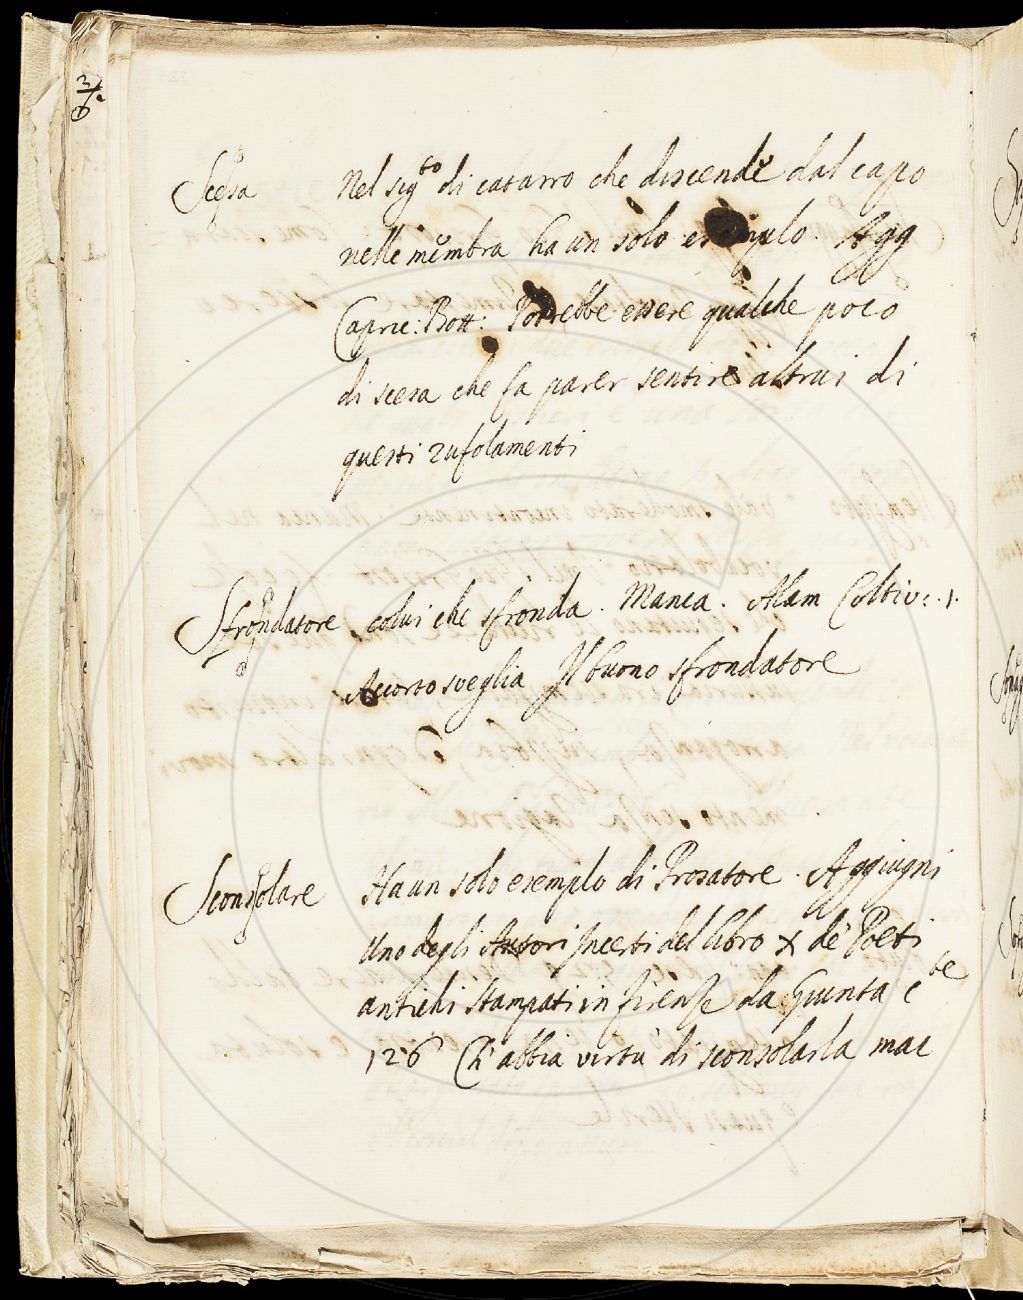 Scesa Nel sig.to di catarro che discende dal capo
nelle membra ha un solo esemplo. Agg
Capric: Bott: Potrebbe essere qualche poco
di scesa che fa parer sentire altrui di
questi zufolamenti
Sfrondatore colui che sfronda. Manca. Alam Coltiv: .1.
Accorto sveglia Il buono sfrondatore
Sconsolare Ha un solo esemplo di Prosatore. Aggiugni
Uno degli Autori Incerti del libro X de' Poeti
antichi stampati in Firenze da Giunta c.te
126 Ch' abbia virtù di sconsolarla mai